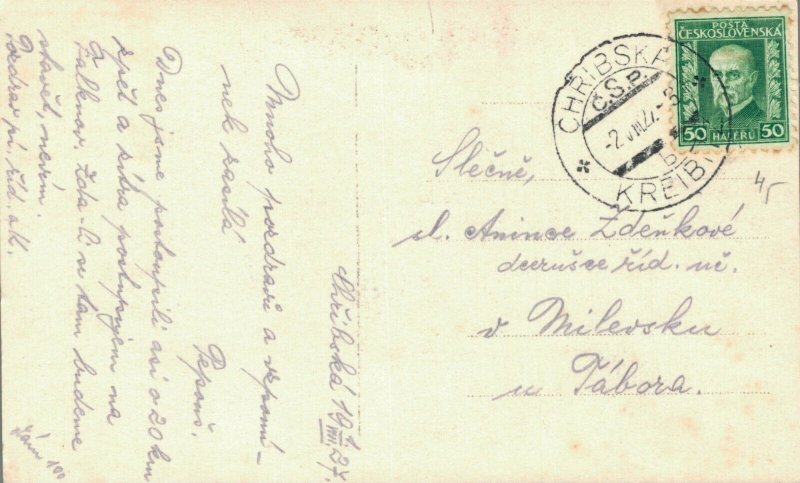 POŠTA
ČESKOSLOVENSKÁ
50 HALÉŘŮ 50
CHŘIBSKÁ
Č.S.P.
KREIBITZ
4,-
Slečně,
sl. Anince Zdeňkové
dcerušce říd. uč.
v Milevsku
u Tábora.
Chřibská 19 1/VIII 27.
Mnoho pozdravů a vzpomí-
nek zasílá
Pepouš.
Dnes jsme postoupili asi o 20 km
zpět a zítra postupujem na
Falknov. Zda-li se tam budeme
stavět, nevím.
Pozdrav pí. říd. atd.
100